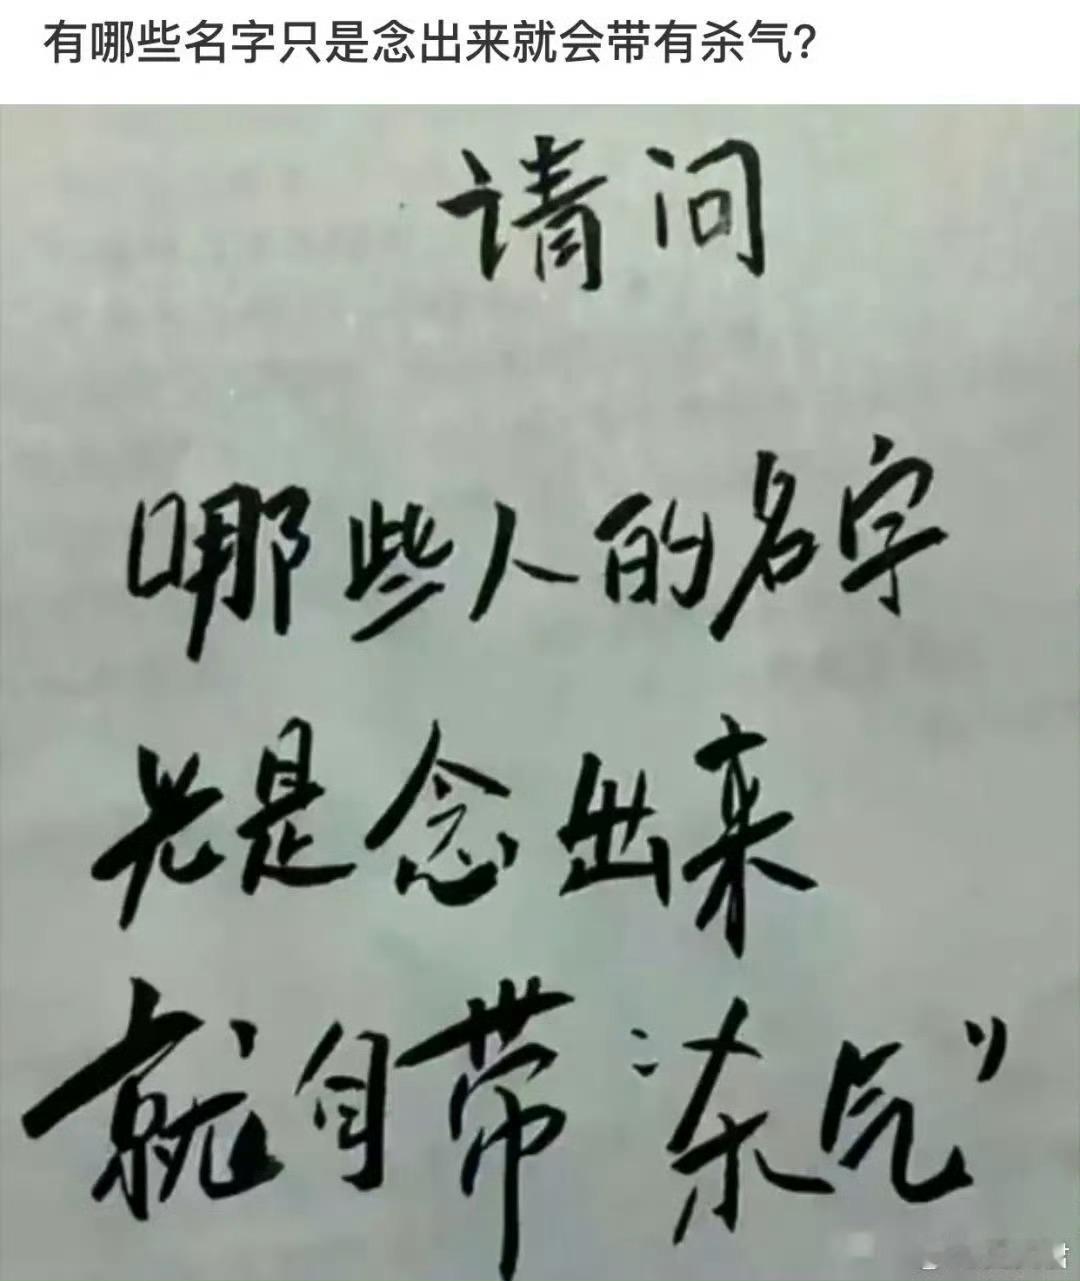 有哪些名字只是念出来就会带有杀气?
请问
哪些人的名字
光是念出来
就自带“杀气”